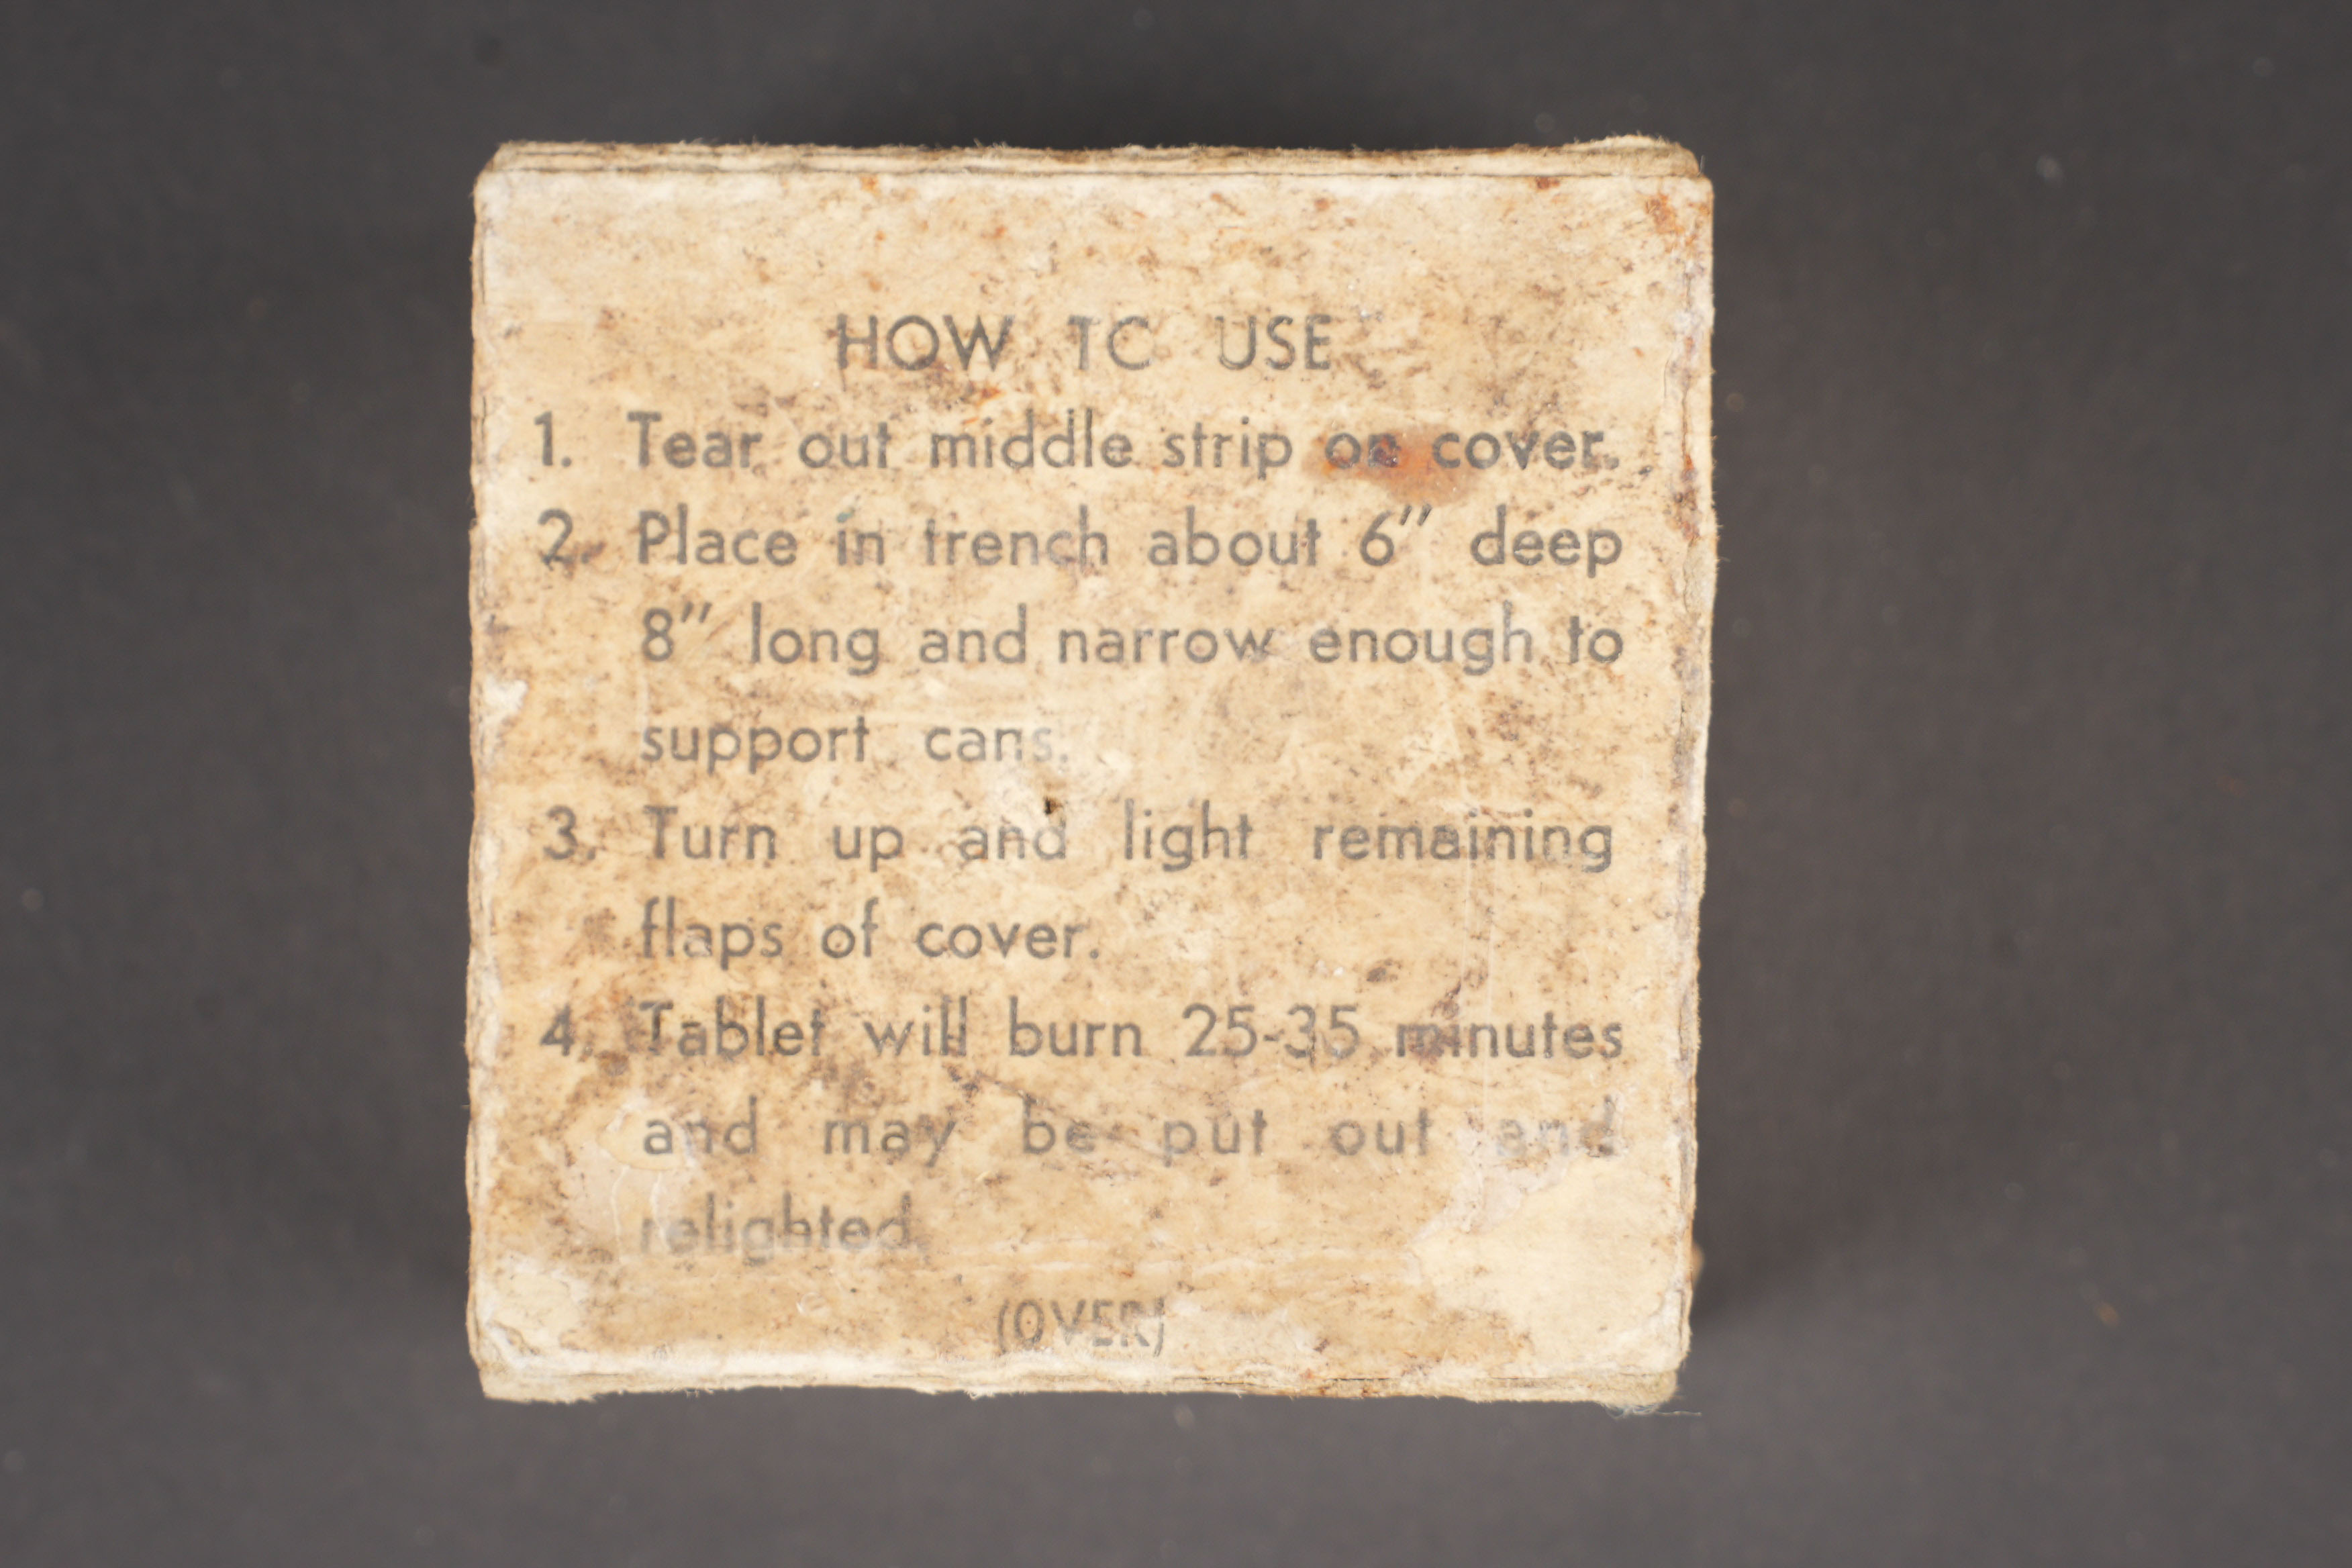 HOW TO USE
1. Tear out middle strip on cover.
2. Place in trench about 6" deep
8" long and narrow enough to
support cans.
3. Turn up and light remaining
flaps of cover.
4. Tablet will burn 25-35 minutes
and may be put out and
relighted.
(OVER)